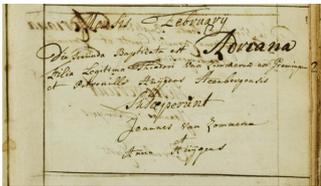 Mensis February
Die secunda Baptizata est Adriana
filia Legitima Theodori van Lommeren ex
et Petronilla Huijgens Steenbergensis
Susceperunt
Joannes van Lommeren
et
Anna Huijgens